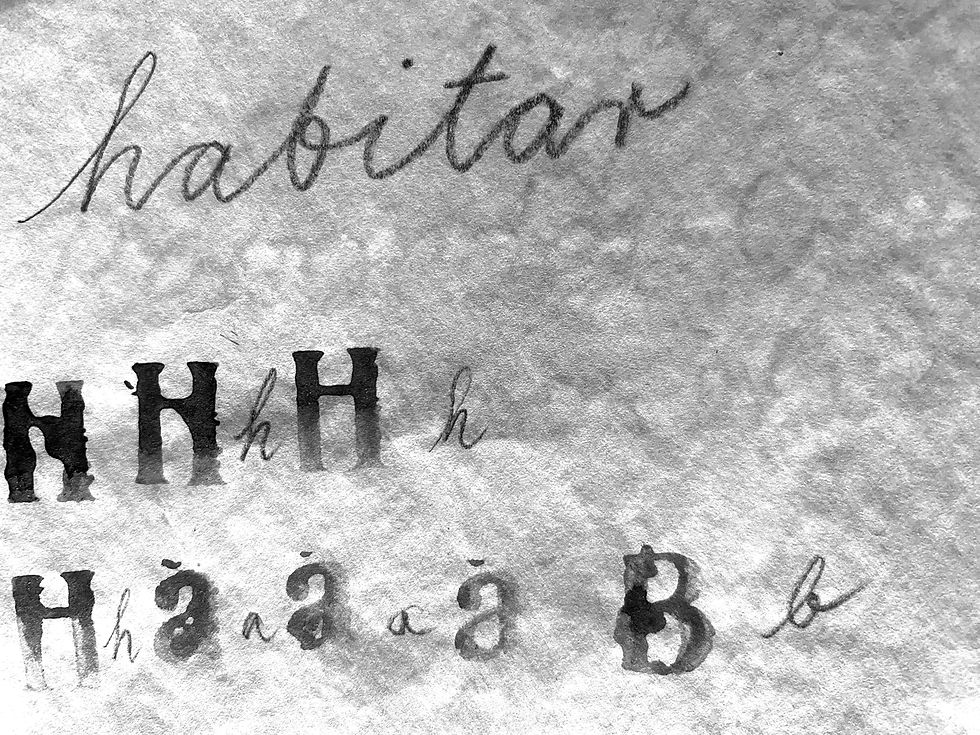 habitar
H H h H h
H h a a a a a B b